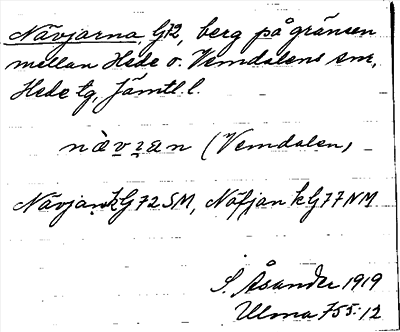 Nävjarna, G72, berg på gränsen
mellan Hede o. Vemdalens sm,
Hede tg, Jämtl. l.
nàvɪan (Vemdalen)
Nävjan, kG72SM, Näfjan kG77NM
S. Åsander 1919
Ulma 755:12